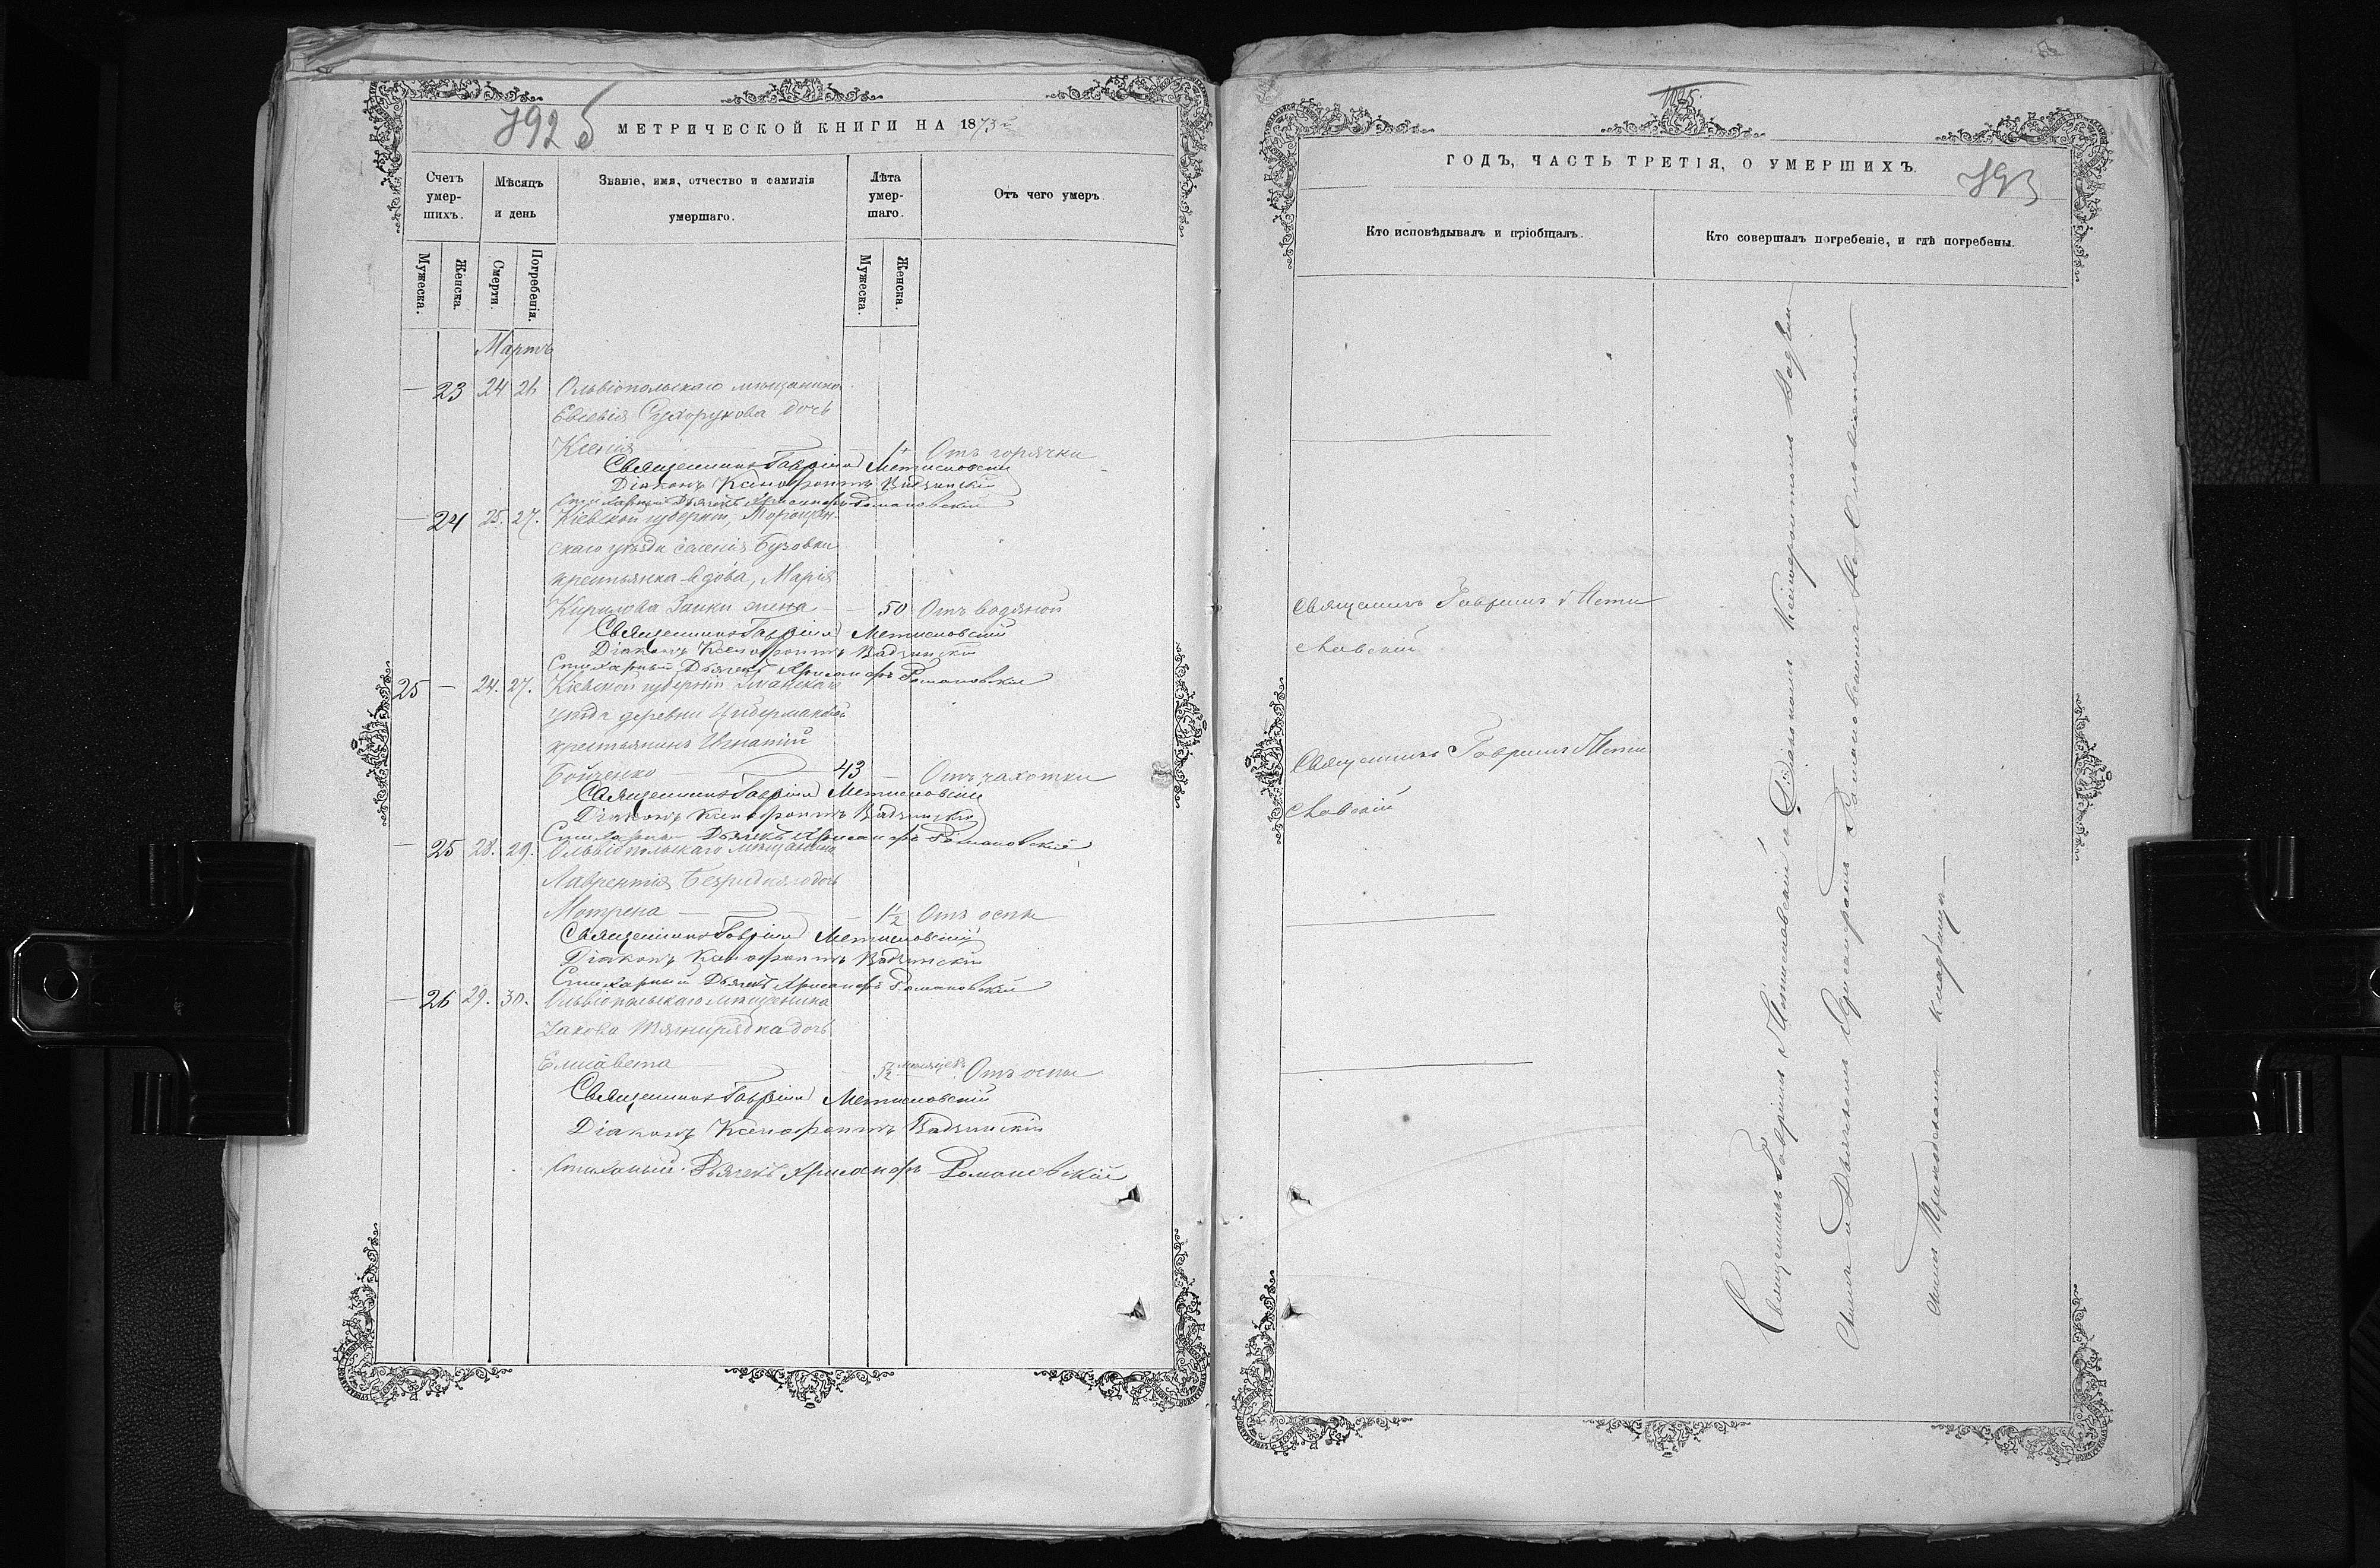 792 б
МЕТРИЧЕСКОЙ КНИГИ НА 1873й
Счетъ умер-шихъ.
Мѣсяцъ и день
Званіе, имя, отчество и фамилія умершаго.
Лѣта умер-шаго.
Отъ чего умеръ.
Мужеска.
Женска.
Смерти.
Погребенія.
Мужеска.
Женска.
Мартъ
— 23 24 26 Ольвіопольскаго мѣщанина
Евсевія Сухорукова дочь
Ксенія 1 Отъ горячки
Священникъ Гавріилъ Метисловскій
Діаконъ Ксенофонтъ Вадзинскій
Стихарный Дьячекъ Хрисанфъ Романовскій
— 24 25. 27. Кіевской губерніи,
скаго уѣзда селенія Бузовки
крестьянка вдова, Марія
Кирилова Заики жена — 50 Отъ водяной
Священникъ Гавріилъ Метисловскій
Діаконъ Ксенофонтъ Вадзинскій
Стихарный Дьячекъ Хрисанфъ Романовскій
25 — 24. 27. Кіевской губерніи Уманскаго
уѣзда деревни
крестьянинъ Игнатій
Бойченко 43 — Отъ чахотки
Священникъ Гавріилъ Метисловскій
Діаконъ Ксенофонтъ Вадзинскій
Стихарный Дьячекъ Хрисанфъ Романовскій
— 25 28. 29. Ольвіопольскаго мѣщанина
Лаврентія дочь
Мотрена — — 1 1/2 Отъ оспы
Священникъ Гавріилъ Метисловскій
Діаконъ Ксенофонтъ Вадзинскій
Стихарный Дьячекъ Хрисанфъ Романовскій
— 26 29. 30. Ольвіопольскаго мѣщанина
Іакова дочь
Елисавета 5 1/2 мѣсяцевъ Отъ оспы
Священникъ Гавріилъ Метисловскій
Діаконъ Ксенофонтъ Вадзинскій
Стихарный Дьячекъ Хрисанфъ Романовскій
ГОДЪ, ЧАСТЬ ТРЕТІЯ, О УМЕРШИХЪ.
793
Кто исповѣдывалъ и пріобщалъ.
Кто совершалъ погребеніе, и гдѣ погребены.
Священникъ Гавріилъ Мети
словскій
Священникъ Гавріилъ Мети
словскій
Священникъ Гавріилъ Метисловскій съ Діакономъ Ксенофонтомъ Вадзин
скимъ и Дьячкомъ Хрисанфомъ Романовскимъ На Ольвіополь
скомъ Приходскомъ кладбищѣ